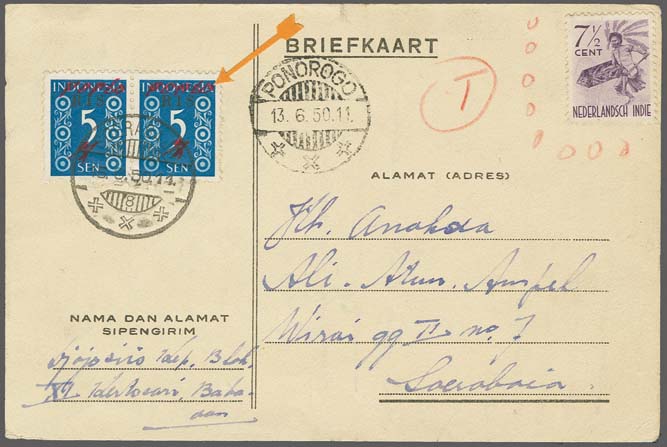 BRIEFKAART
INDONESIA INDONESIA
RIS RIS
5 5
SEN SEN
PONOROGO
13.6.50.11.
T
7½
CENT
NEDERLANDSCH INDIË
ALAMAT (ADRES)
Kh. Anahda
Ali. Atun. Ampel
Wirai gg II no. 7
Soeraboia
NAMA DAN ALAMAT
SIPENGIRIM